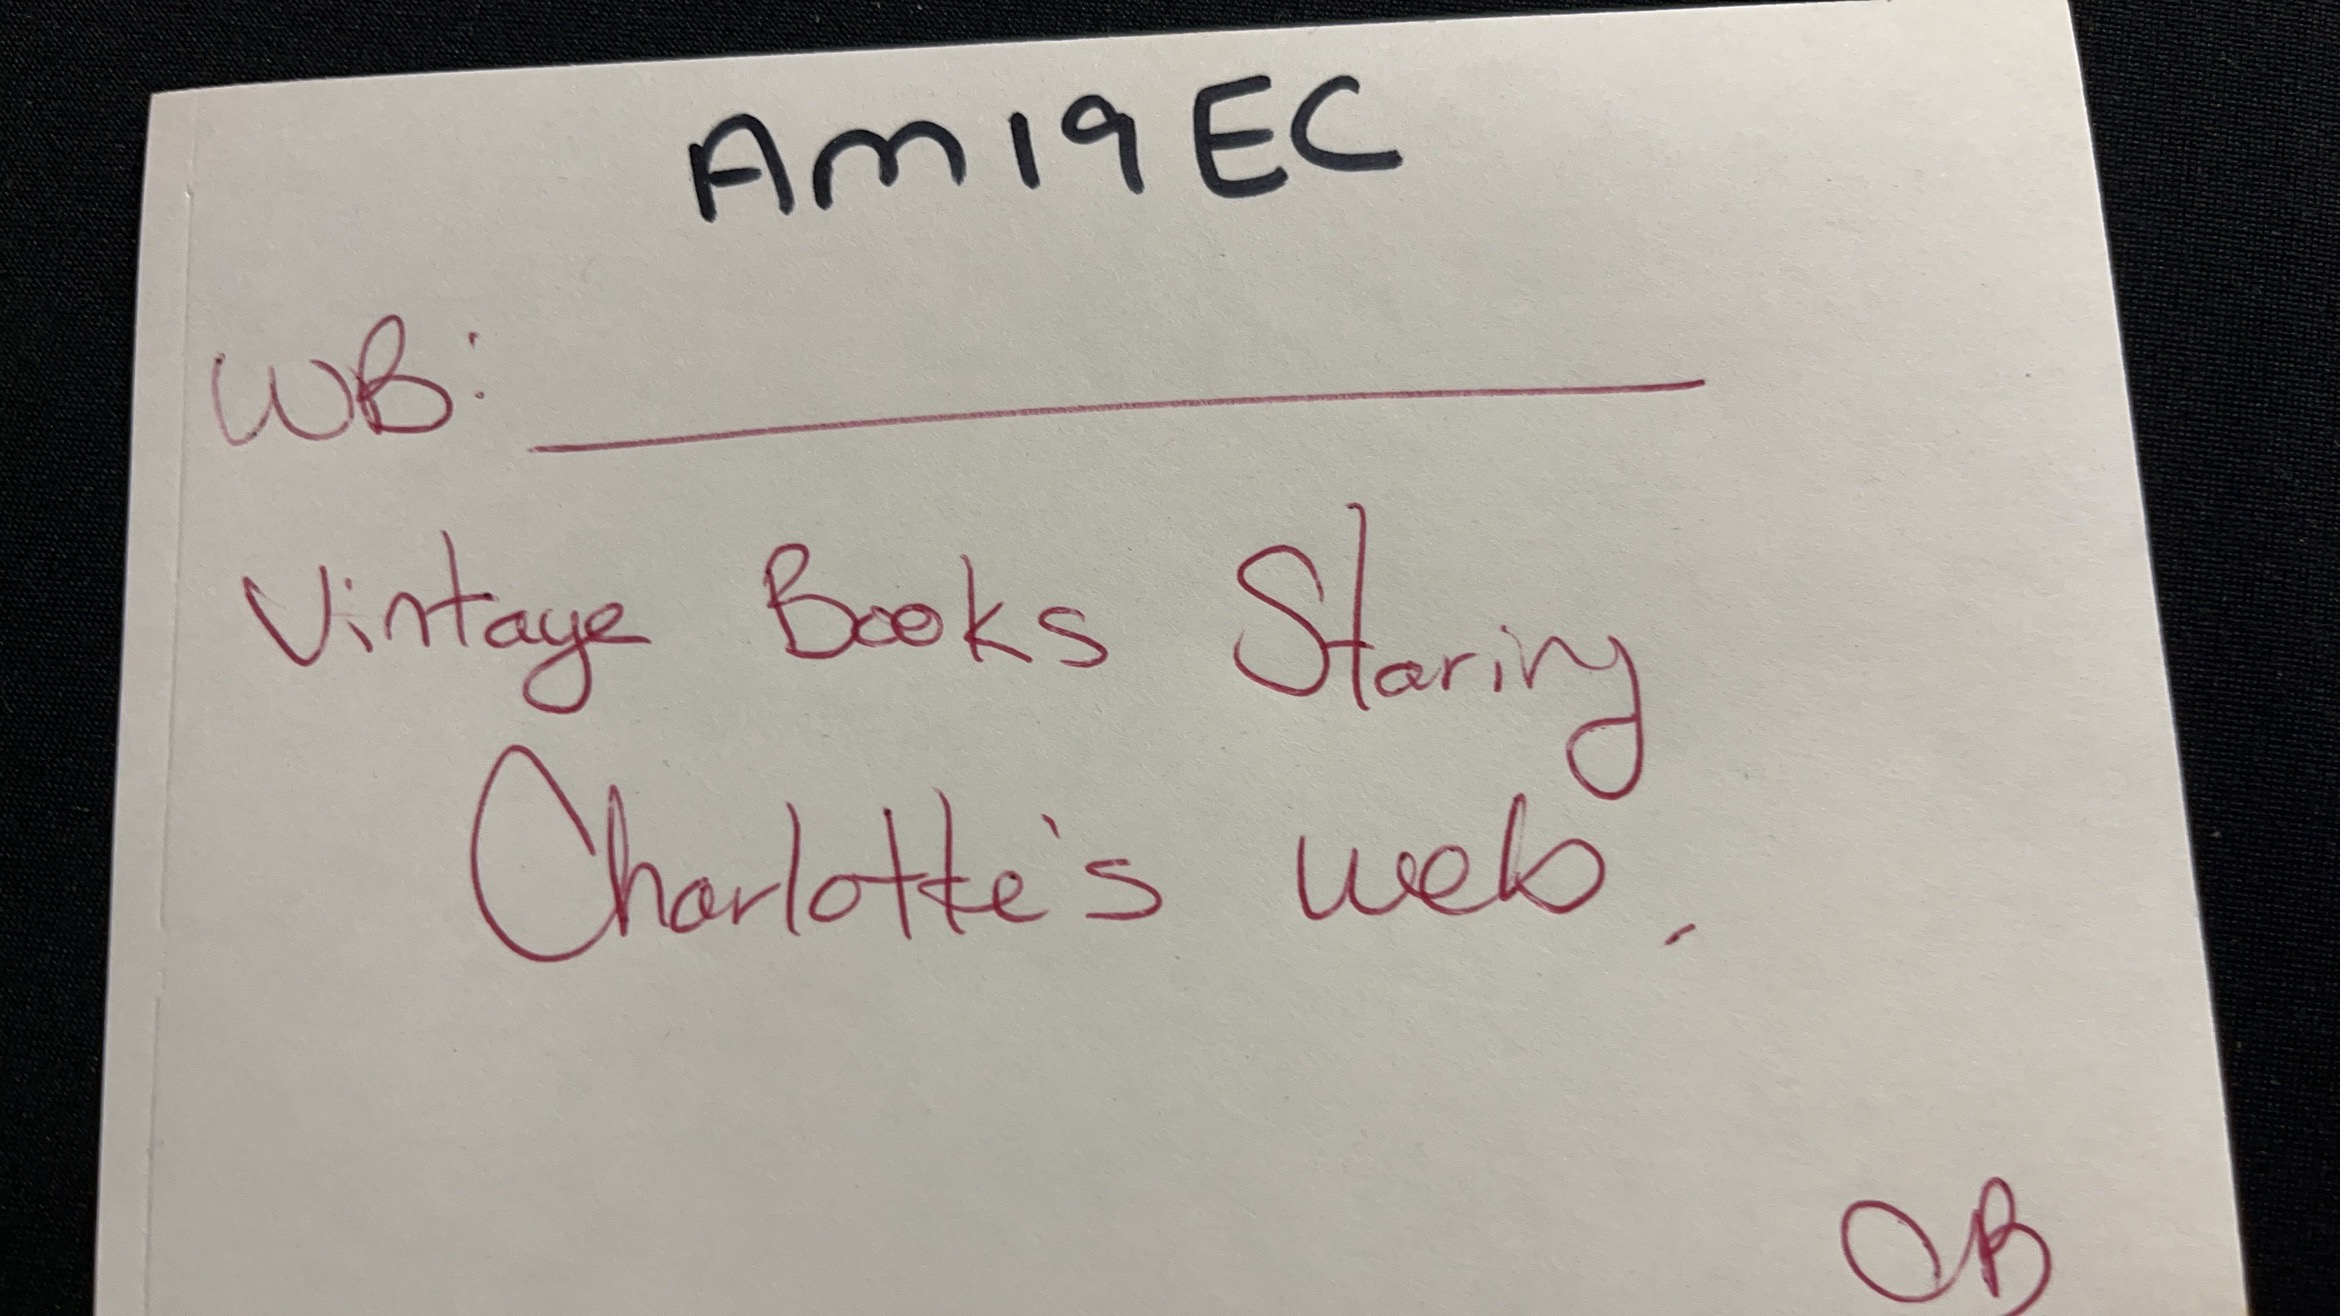 Am19EC
WB: ______________
Vintage Books Staring
Charlotte's web.
OB